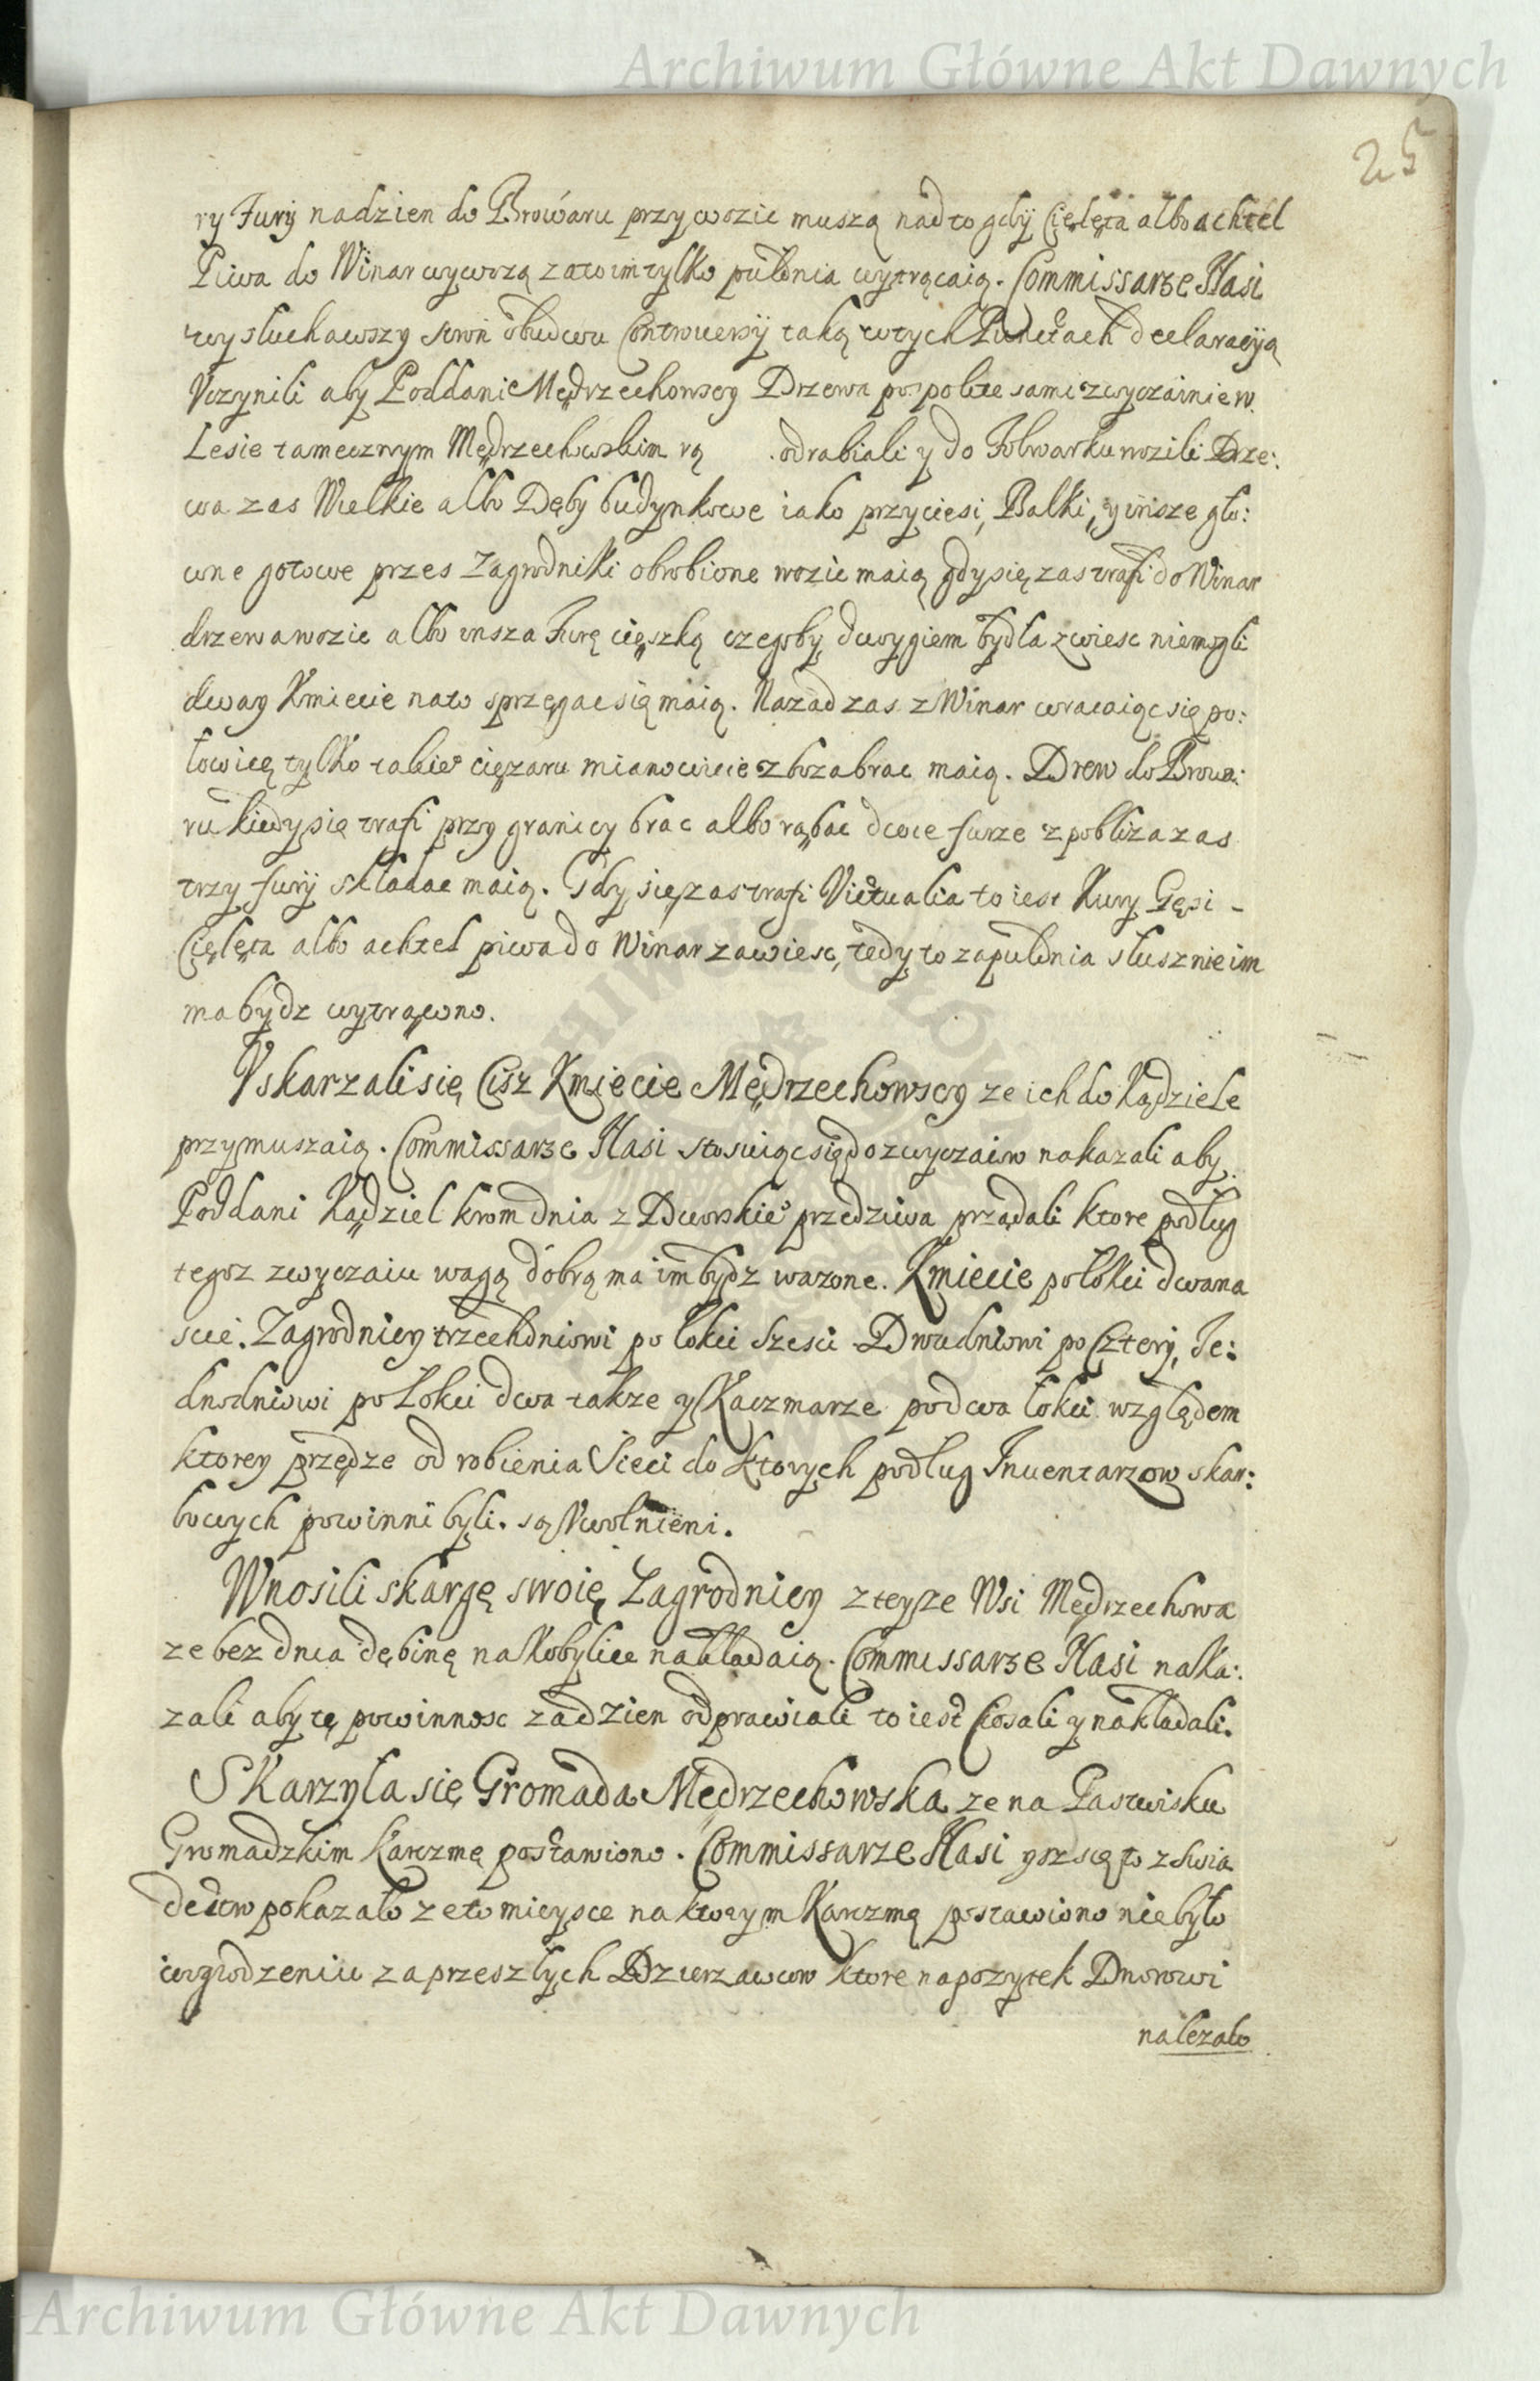 Archiwum Główne Akt Dawnych
25
ry Fury na dzien do Browaru przywozic muszą nad to gdÿ Cięlęta albo achtel
Piwa do Winar wywozą za to im tylko pułdnia wytrącaią. Commissarze Nasi
wysłuchawszy stron obudwu Controuersÿ taką w tych Punctach declaracyią
Vczynili aby Poddani Mędrzechowscy Drzewa pospolite sami zwyczainie w
Lesie tamecznym Mędrzechowskim rą odrabiali y do Folwarku wozili Drze:
wa zas Wielkie albo Dęby budynkowe iako przyciesi, Balki, y insze glo:
wne gotowe przes Zagrodniki obrobione wozic maią gdy się zas trafi do Winar
drzewa wozic albo insza Furę cięszką czegoby dwoygiem bydła zwiesc niemogli
dway Kmiecie na to sprzęgac się maią. Nazad zas z Winar wracaiąc się po:
łowicę tylko takieo cięzaru mianowicie zboza brac maią. Drew do Browa:
ru kiedy się trafi przy granicy brac albo rąbac dwie furze z pobliza zas
trzy furÿ składac maią. Gdy się zas trafi Victualia to iest Kury Gęsi -
Cięlęta albo achtel piwa do Winar zawiesc, tedy to za pułdnia słusznie im
ma bydz wytrącono.
Vskarzali się Cisz Kmiecie Mędrzechowscy ze ich do kądziele
przymuszaią. Commissarze Nasi stosuiąc się do zwyczaiow nakazali aby
Poddani Kądziel krom dnia z Dworskieo przedziwa prządali ktore podług
tegosz zwyczaiu wagą dobrą ma im bydz wazone. Kmiecie po łokci dwana
scie. Zagrodnicy trzechdniowi po łokci szesci Dwudniowi po Cztery, Je:
dnodniowi po Łokci dwa takze y Kaczmarze po dwa łokci względem
ktorey przędze od robienia Sieci do ktorych podług Inuentarzow skar:
bowych powinni byli. są Vwolnieni.
Wnosili skargę swoię Zagrodnicy z teyze Wsi Mędrzechowa
ze bez dnia dębinę na Kobylice nakładaią. Commissarze Nasi naka:
zali aby tę powinnosc za dzien odprawiali to iest Ciosali y nakładali.
Skarzyła się Gromada Mędrzechowska ze na Pastwisku
Gromadzkim karczmę postawiono. Commissarze Nasi ysz się to z swia
dectw pokazało ze to mieysce na ktorym Karczmą postawiono nie było
w ogrodzeniu za przeszłych Dzierzawcow ktore na pozytek Dworowi
nalezało
Archiwum Główne Akt Dawnych